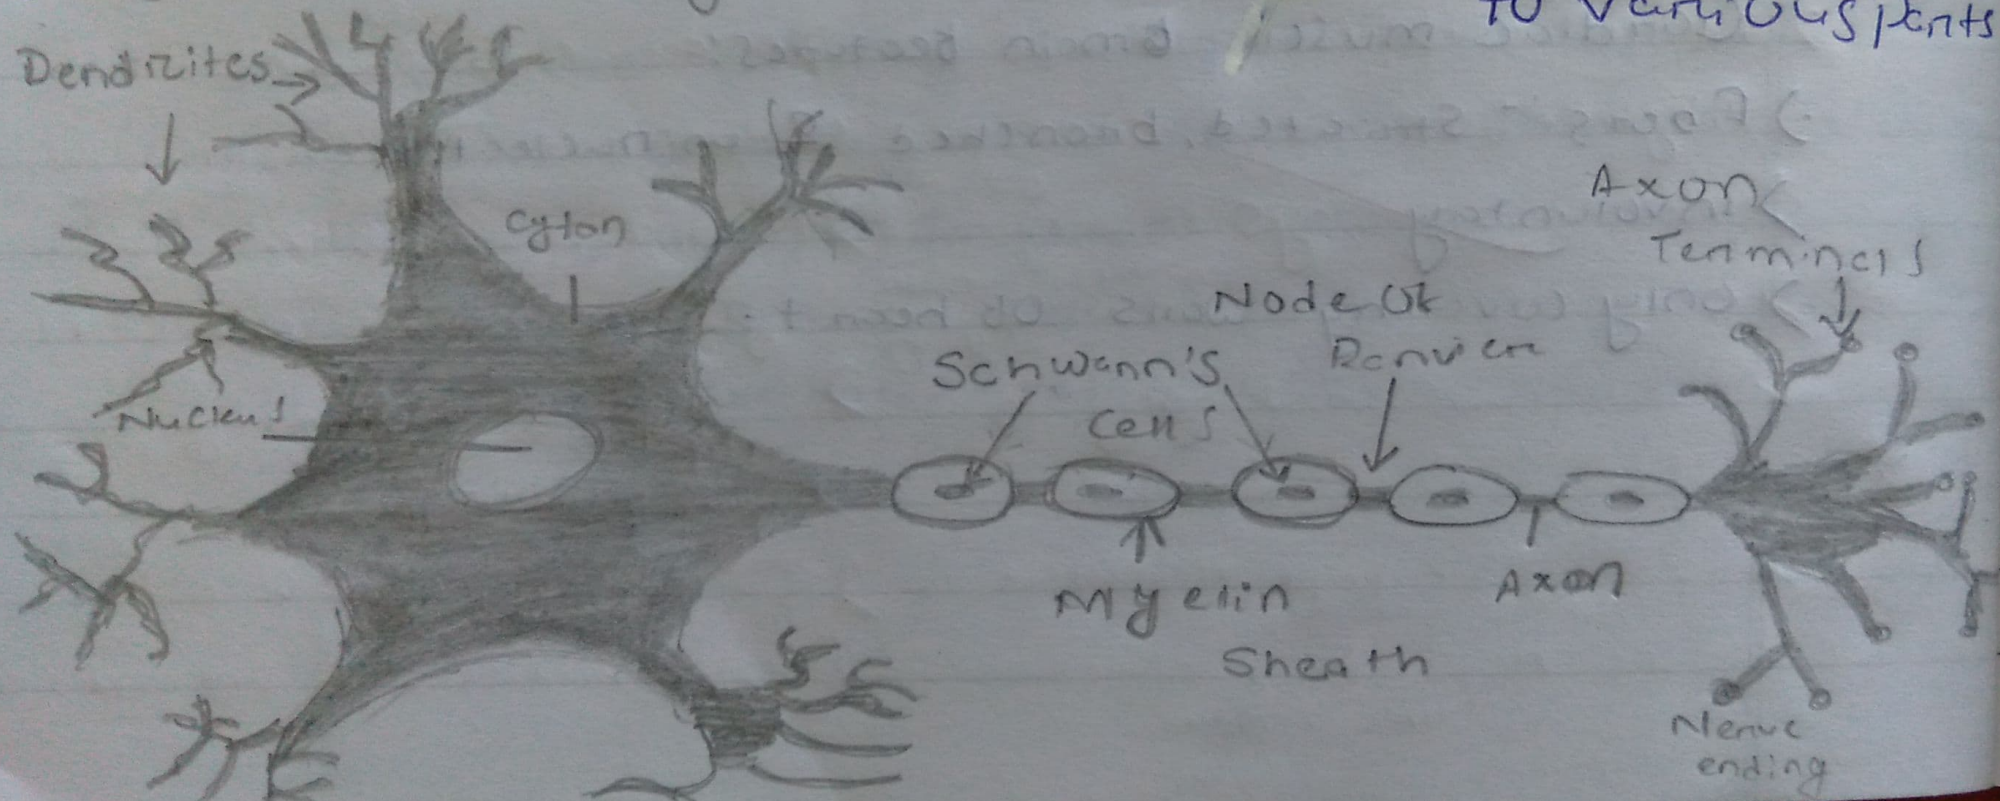 To various parts
Dendrites
Cyton
Axon
Terminals
Node of
Ranvier
Schwann's
cells
Nucleus
Myelin
Sheath
Axon
Nerve
ending